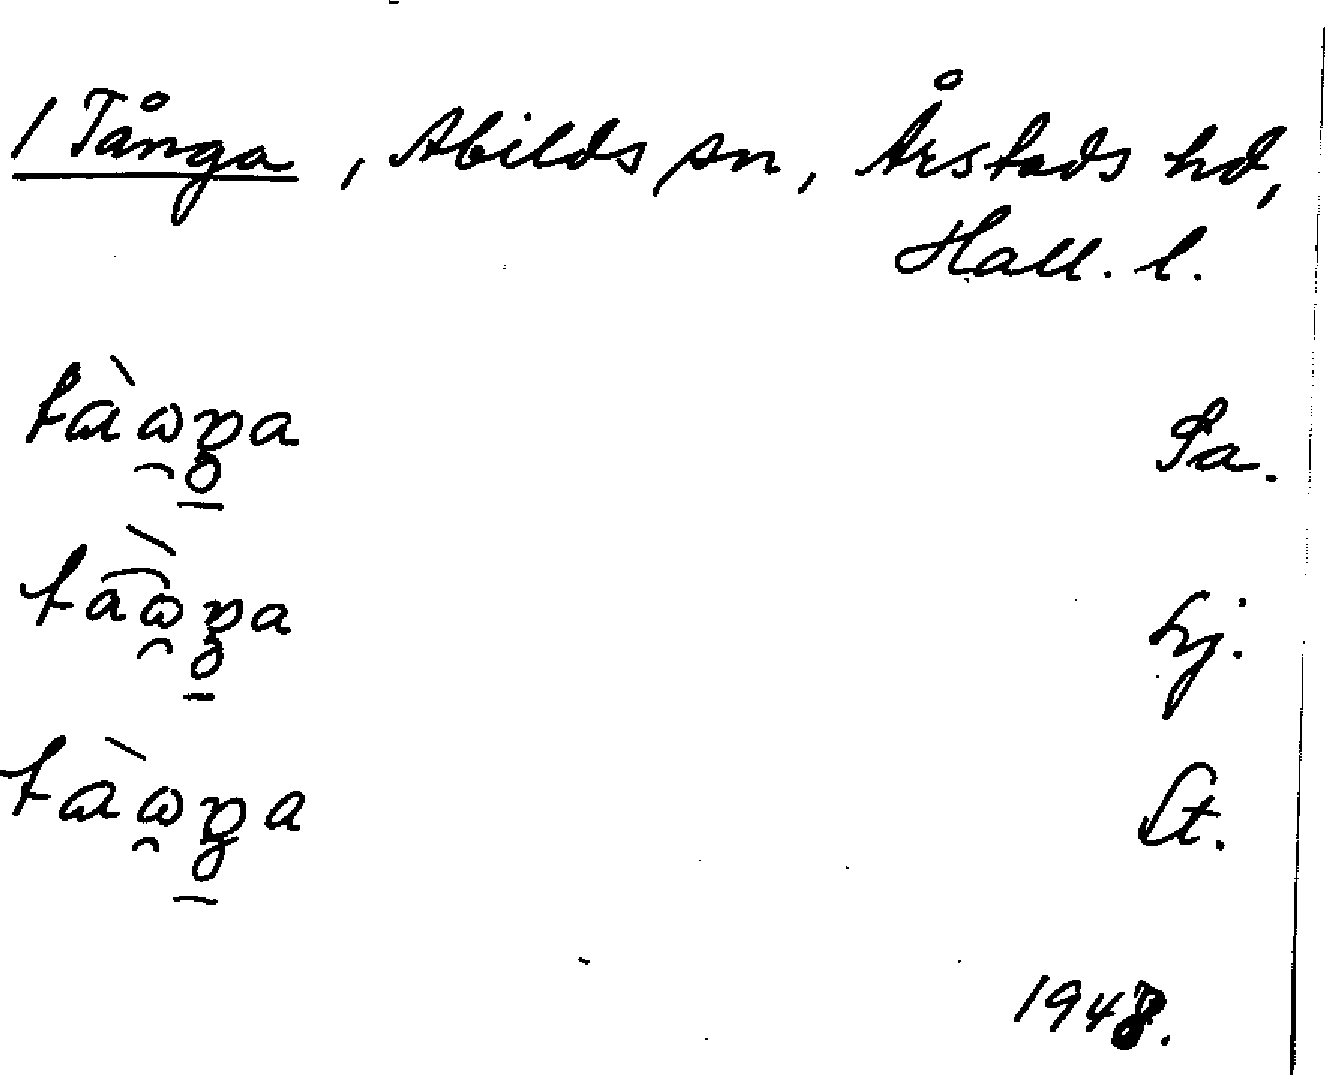 1 Tånga, Abilds sn, Årstads hd,
Hall. l.
tɑ̀ω̯ŋa Sa.
taὼ̯ŋa Lj.
tɑ̀ω̯ŋa St.
1948.